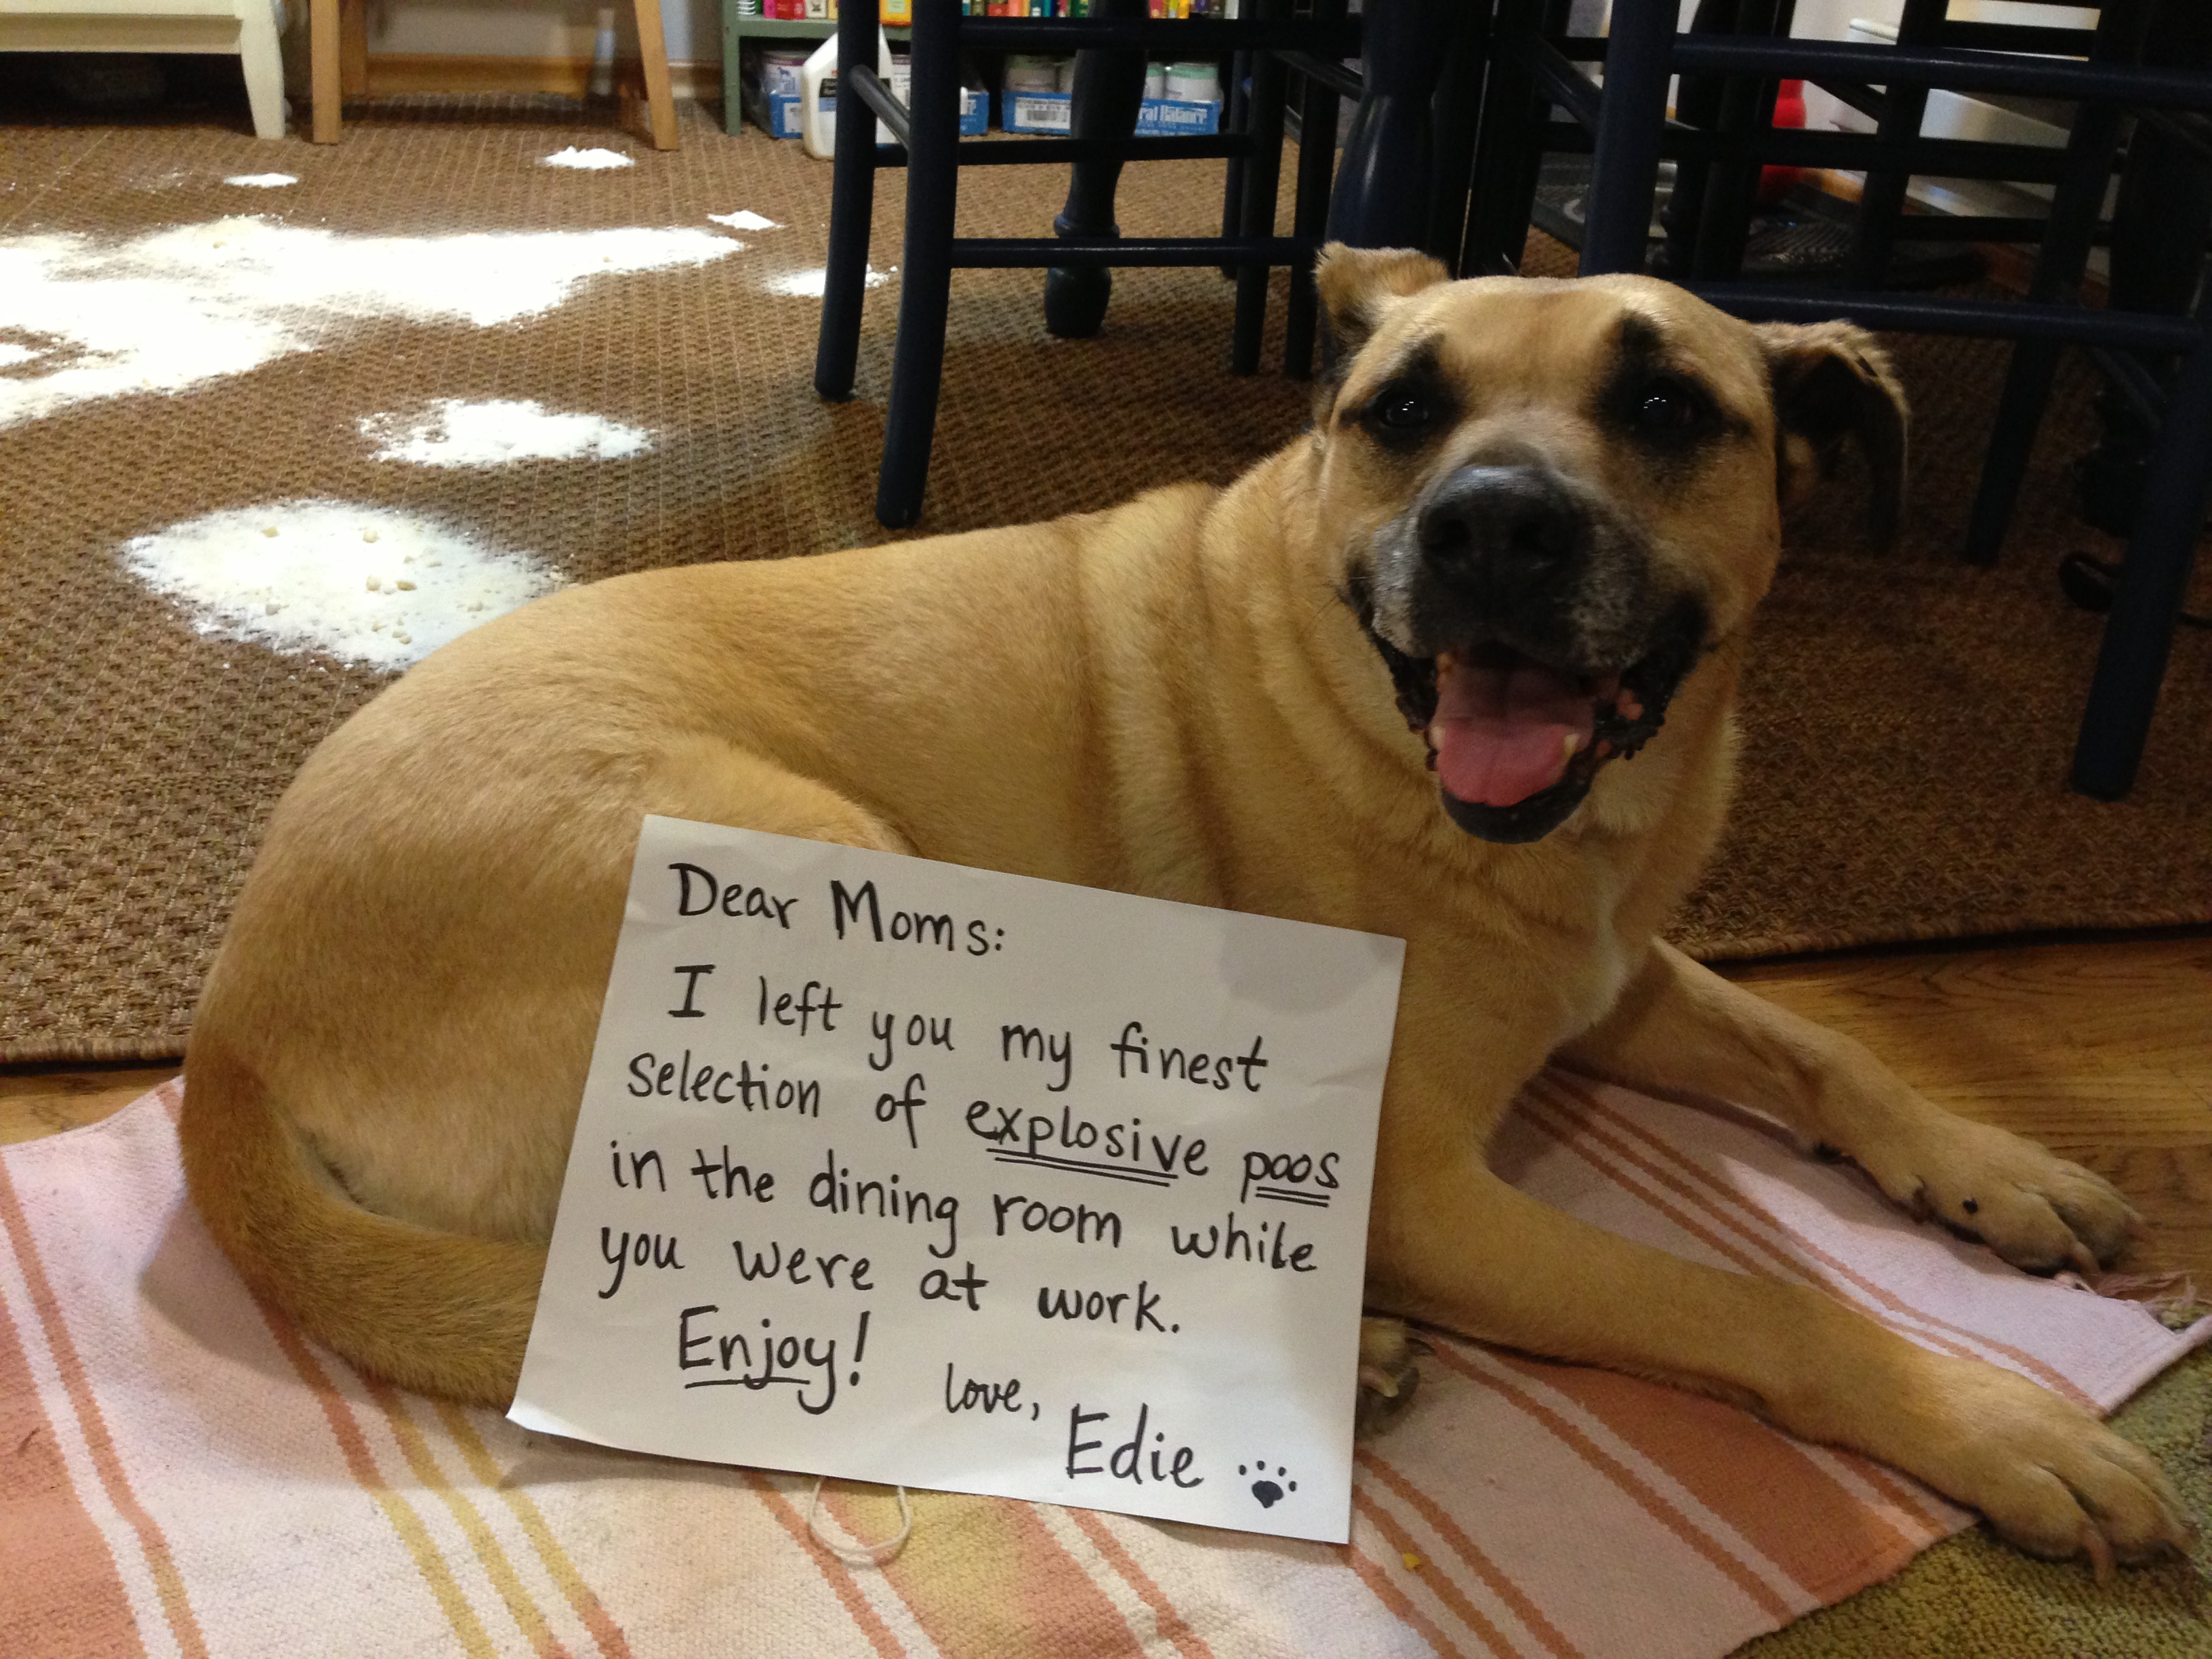 Dear Moms:
I left you my finest
selection of explosive poos
in the dining room while
you were at work.
Enjoy!
love,
Edie